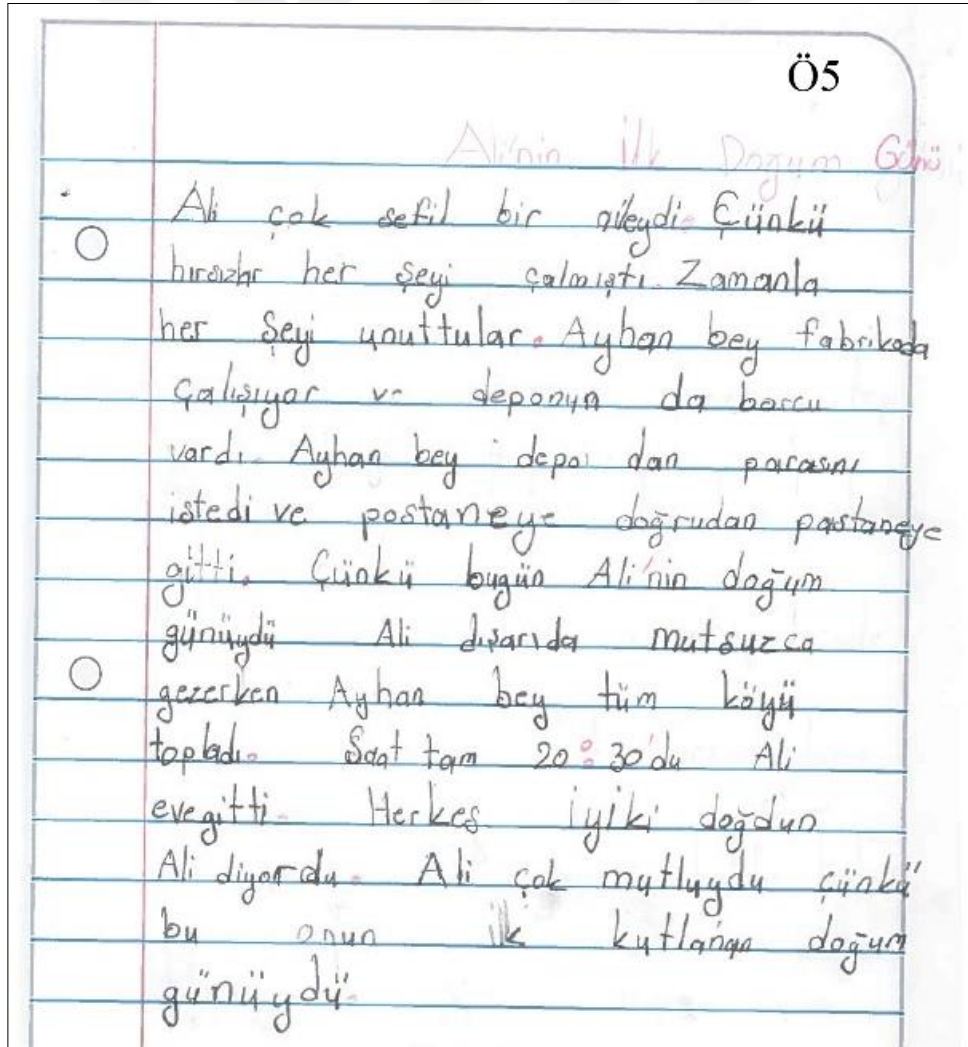 Ö5
Ali'nin İlk Doğum Günü
Ali çok sefil bir aileydi. Çünkü
hırsızlar her şeyi çalmıştı. Zamanla
her Şeyi unuttular. Ayhan bey fabrikada
çalışıyor ve deponun da borcu
vardı. Ayhan bey depo dan parasını
istedi ve postaneye doğrudan pastaneye
gitti. Çünkü bugün Ali'nin doğum
günüydü Ali dışarıda mutsuzca
gezerken Ayhan bey tüm köyü
topladı. Saat tam 20:30'du Ali
eve gitti. Herkes İyiki doğdun
Ali diyordu. Ali çok mutluydu çünkü
bu onun ilk kutlanan doğum
günüydü.